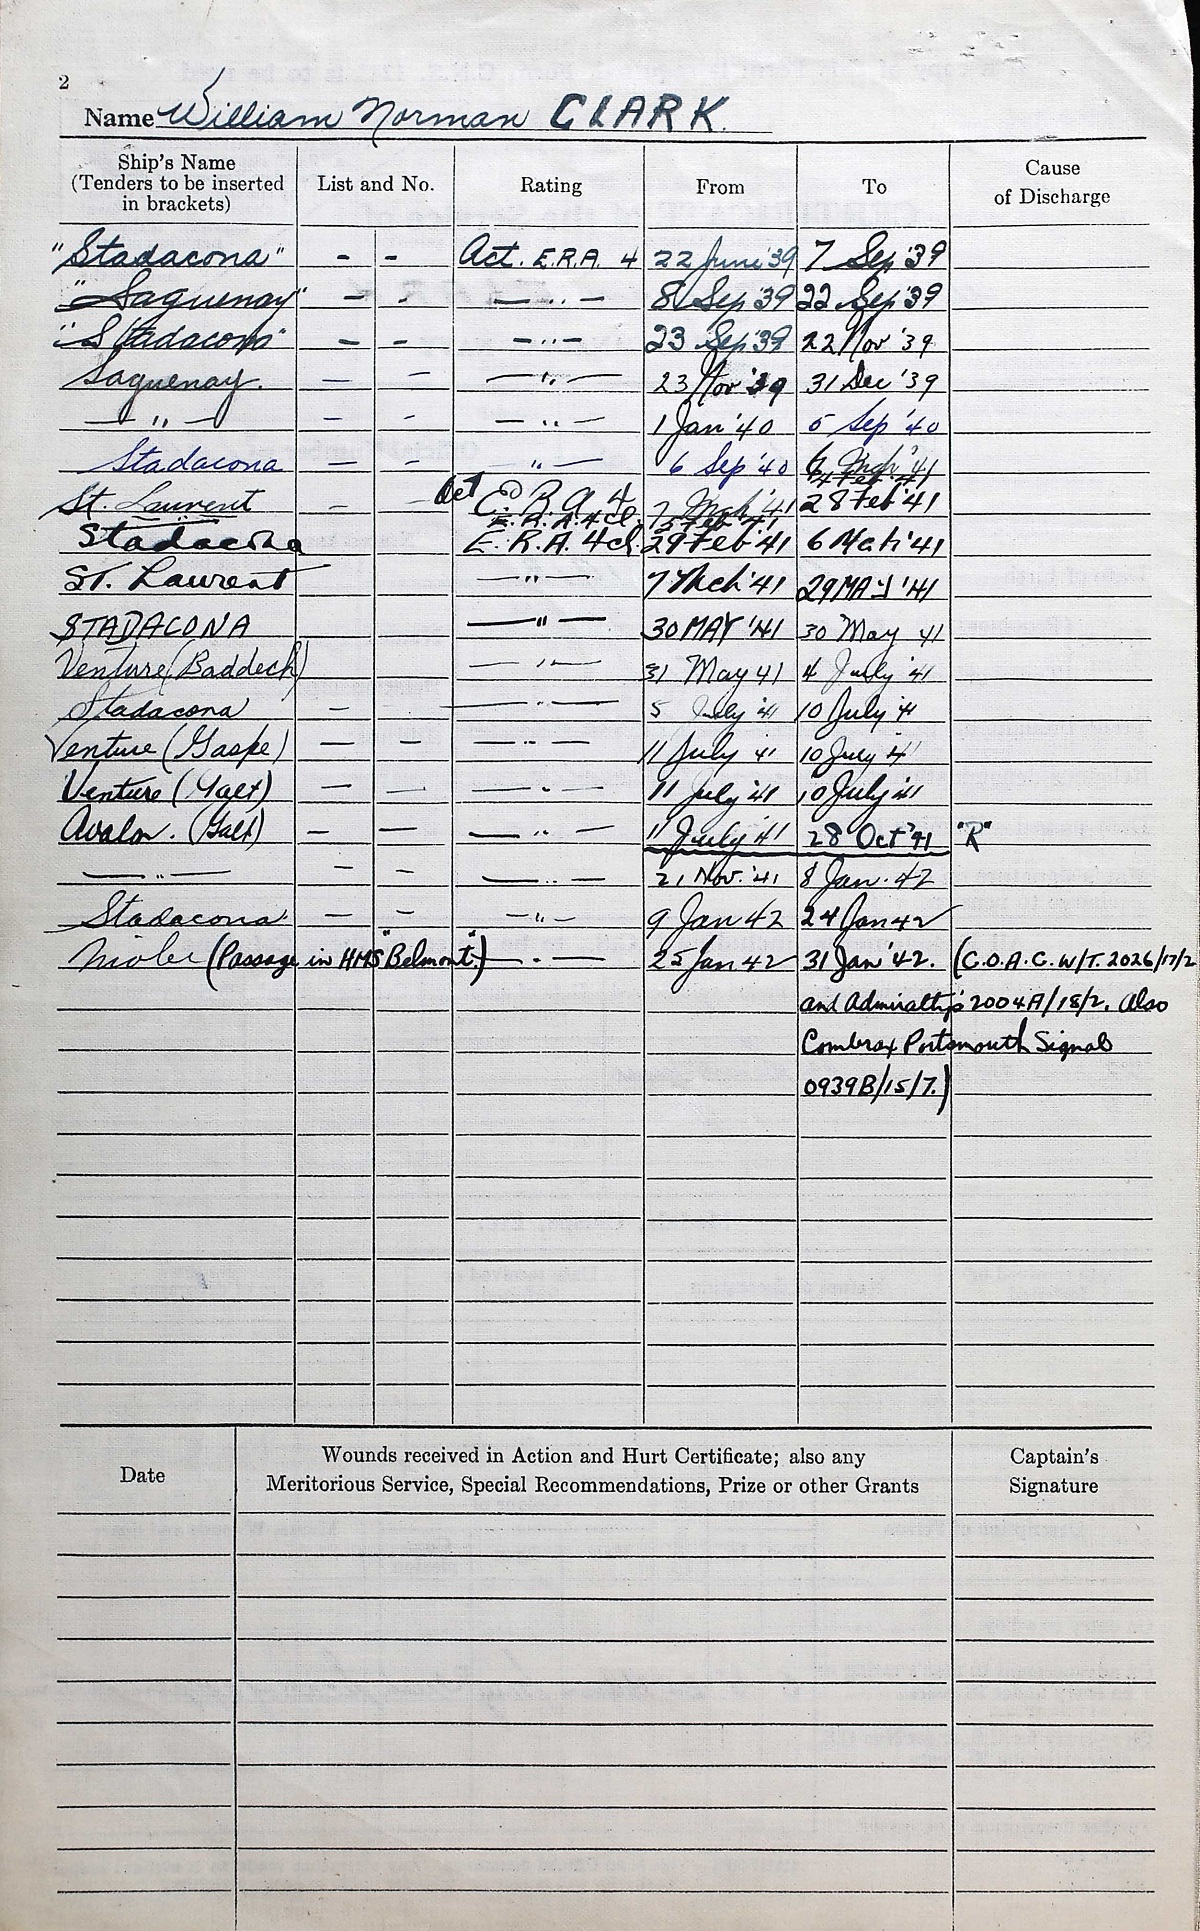 2
Name William Norman CLARK.
Ship's Name
(Tenders to be inserted
in brackets)
List and No.
Rating
From
To
Cause
of Discharge
"Stadacona" - - Act. E.R.A. 4 22 June '39 7 Sep '39
"Saguenay" - - — " — 8 Sep '39 22 Sep '39
"Stadacona" - - — " — 23 Sep '39 22 Nov '39
Saguenay. - - — " — 23 Nov '39 31 Dec '39
— " — - - — " — 1 Jan '40 5 Sep '40
Stadacona - - " — 6 Sep '40 6 Mch '41
4 Feb '41
St. Laurent - - Act E R A 4 7 Mch '41 28 Feb '41
E.R.A. 4 cl. 5 Feb '41
Stadacona E.R.A. 4cl. 29 Feb '41 6 Mch '41
ST. Laurent — " — 7 Mch '41 29 MAY '41
STADACONA — " — 30 MAY '41 30 May 41
Venture (Baddeck) — " — 31 May 41 4 July '41
Stadacona - - — " — 5 July '41 10 July '41
Venture (Gaspe) - - — " — 11 July '41 10 July '41
Venture (Galt) - - — " — 11 July '41 10 July '41
Avalon. (Galt) - - — " — 11 July '41 28 Oct '41 "R"
— " — - - — " — 21 Nov. '41 8 Jan. 42
Stadacona - - — " — 9 Jan 42 24 Jan 42
Niobe (Passage in HMS "Belmont".) — " — 25 Jan 42 31 Jan '42. (C.O.A.C. W/T. 2026/17/2
and Admiralty's 2004A/18/2. Also
Combrax Portsmouth Signal
0939B/15/7.)
Date
Wounds received in Action and Hurt Certificate; also any
Meritorious Service, Special Recommendations, Prize or other Grants
Captain's
Signature